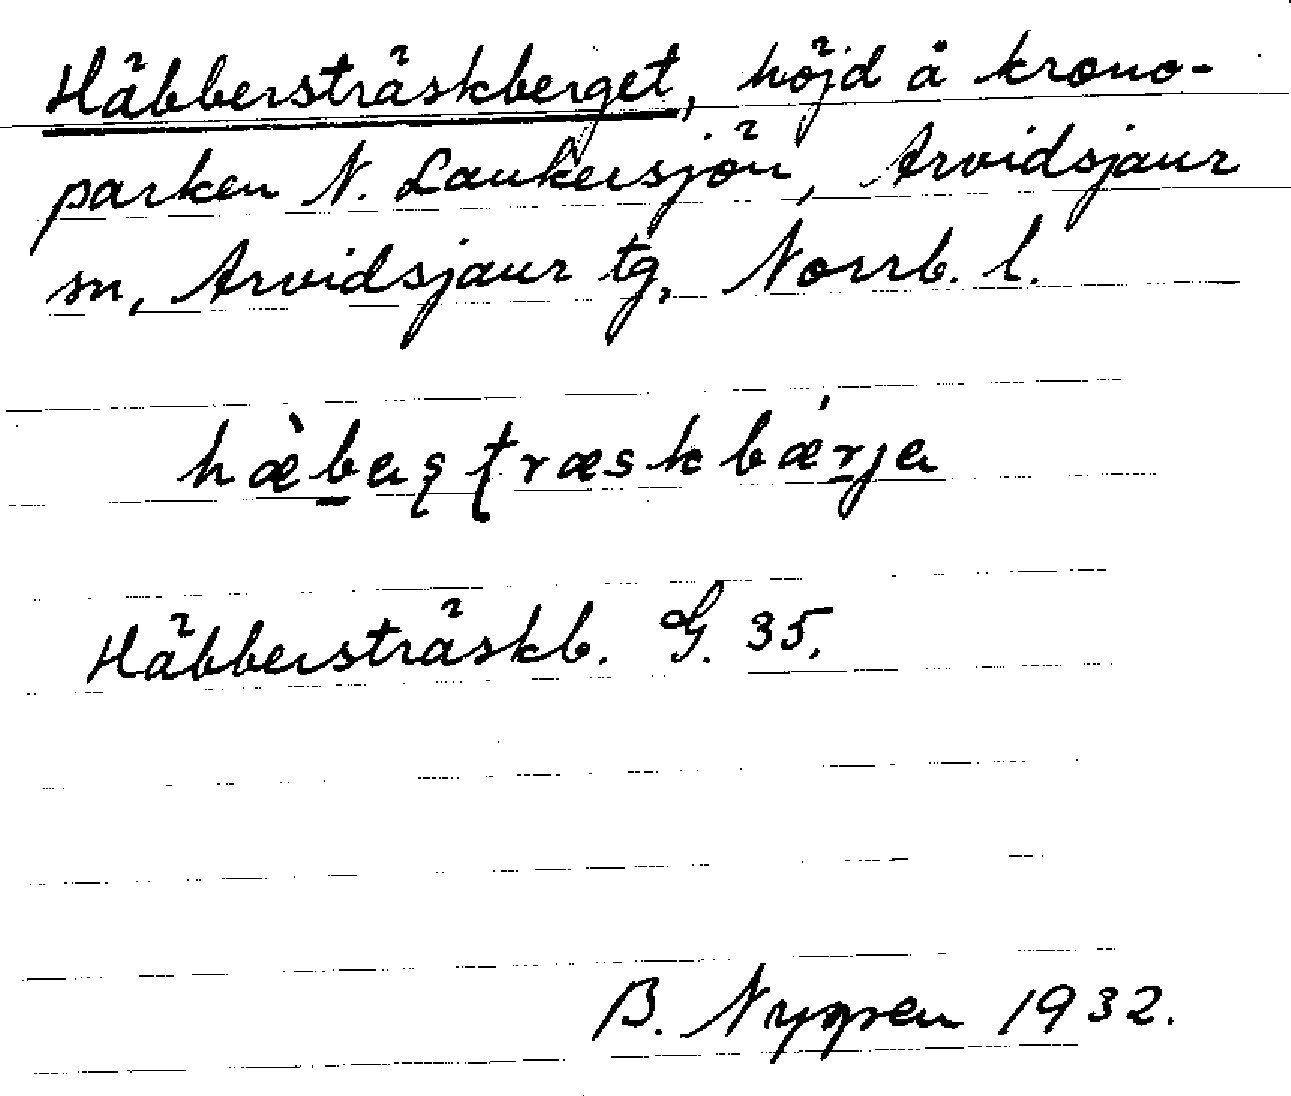 Häbbersträskberget, höjd å krono-
parken N. Laukersjön, Arvidsjaur
sn, Arvidsjaur tg, Norrb. l.
hæ̀b̲eʂʈræskbǽr̲je
Häbbersträskb. G. 35.
B. Nygren 1932.